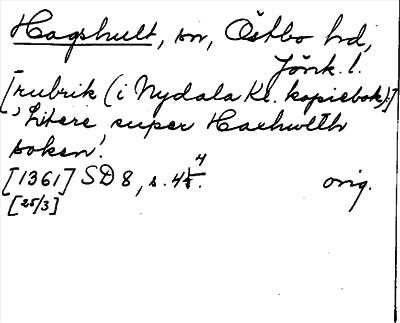 Hagshult, sn, Östbo hd,
Jönk. l.
[rubrik (i Nydala kl. kopiebok):]
'Litere super Hachulth
soken'.
[1361] SD 8, s. 4 orig.
[25/3]